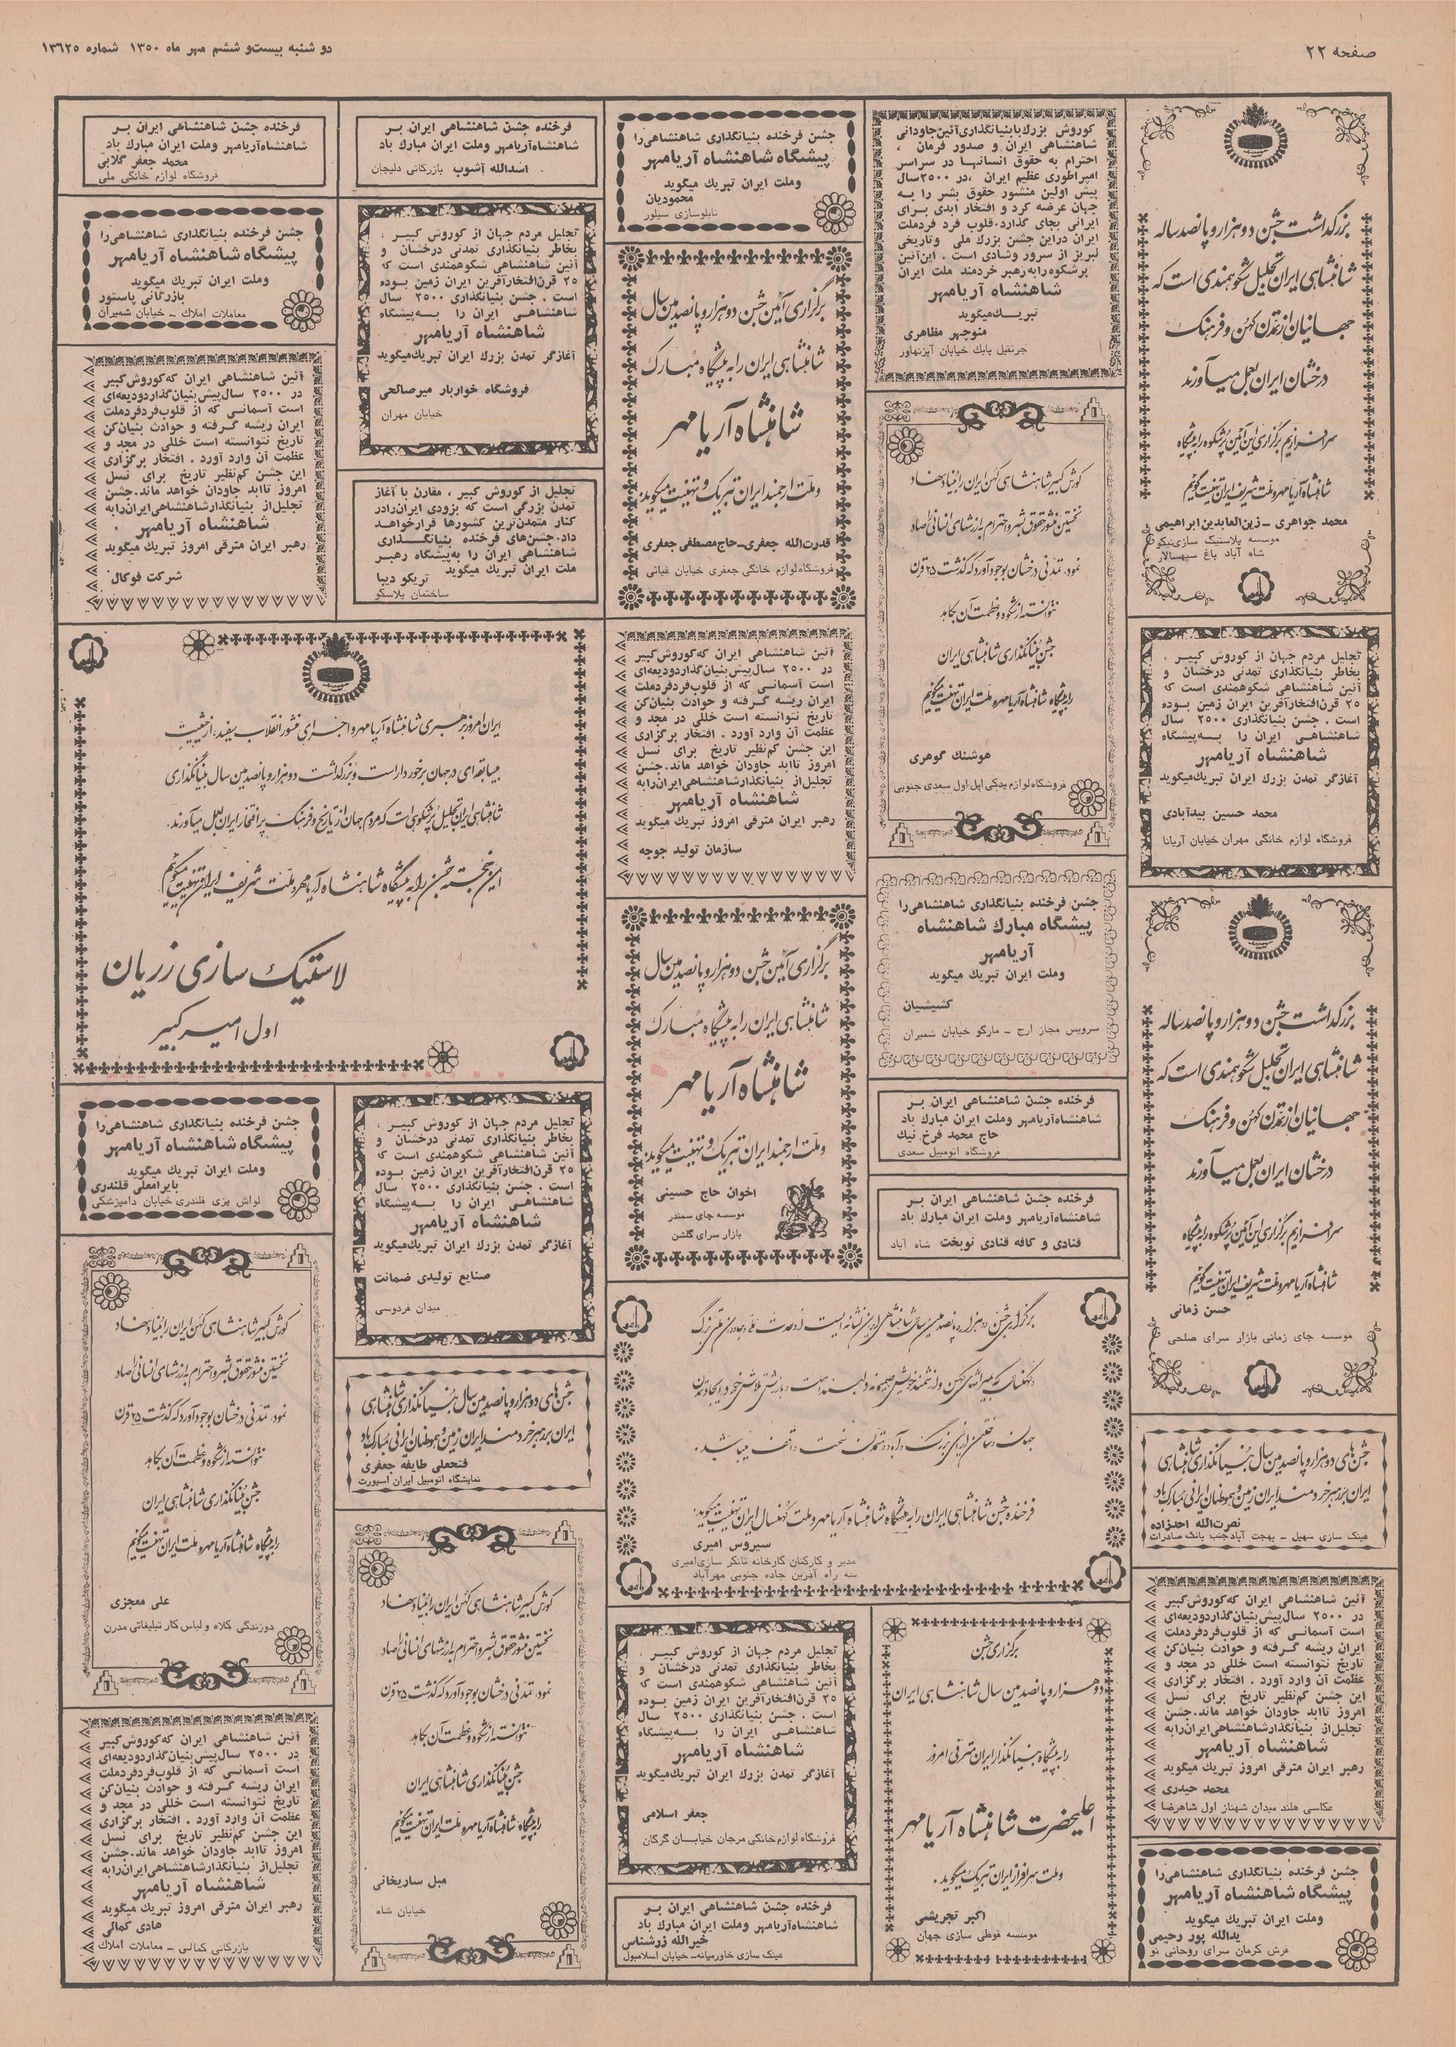 صفحه ۲۲
دو شنبه بیست‌و ششم مهر ماه ۱۳۵۰ شماره ۱۳۶۲۵
بزرگداشت جشن دوهزار و پانصد ساله
شاهنشاهی ایران تجلیل شکوهمندی است که
جهانیان از تمدن کهن و فرهنگ
درخشان ایران بعمل میآورند
سرافرازیم برگزاری این آئین پرشکوه را به پیشگاه
شاهنشاه آریامهر و ملت شریف ایران تهنیت گوئیم
محمد جواهری – زین‌العابدین ابراهیمی
موسسه پلاستیک سازی نیکو
شاه آباد باغ سپهسالار
تجلیل مردم جهان از کوروش کبیر ،
بخاطر بنیانگذاری تمدنی درخشان و
آئین شاهنشاهی شکوهمندی است که
۲۵ قرن افتخارآفرین ایران زمین بوده
است . جشن بنیانگذاری ۲۵۰۰ سال
شاهنشاهی ایران را به‌پیشگاه
شاهنشاه آریامهر
آغازگر تمدن بزرگ ایران تبریک میگوید
محمد حسین بیدآبادی
فروشگاه لوازم خانگی مهران خیابان آریانا
بزرگداشت جشن دوهزار و پانصد ساله
شاهنشاهی ایران تجلیل شکوهمندی است که
جهانیان از تمدن کهن و فرهنگ
درخشان ایران بعمل میآورند
سرافرازیم برگزاری این آئین پرشکوه را به پیشگاه
شاهنشاه آریامهر و ملت شریف ایران تهنیت گوئیم
حسن زمانی
موسسه چای زمانی بازار سرای صلحی
جشن‌های دوهزار و پانصدمین سال بنیانگذاری شاهنشاهی
ایران بر رهبر خردمند ایران زمین و هموطنان ایرانی مبارک باد
نصرت‌الله احدزاده
عینک سازی سهیل – بهجت آباد جنب بانک صادرات
آئین شاهنشاهی ایران که کوروش کبیر
در ۲۵۰۰ سال پیش بنیان گذارد ودیعه‌ای
است آسمانی که از قلوب فردفرد ملت
ایران ریشه گرفته و حوادث بنیان‌کن
تاریخ نتوانسته است خللی در مجد و
عظمت آن وارد آورد . افتخار برگزاری
این جشن کم‌نظیر تاریخ برای نسل
امروز تاابد جاودان خواهد ماند. جشن
تجلیل از بنیانگذار شاهنشاهی ایران را به
شاهنشاه آریامهر
رهبر ایران مترقی امروز تبریک میگوید
محمد حیدری
عکاسی هلند میدان شهناز اول شاهرضا
جشن فرخنده بنیانگذاری شاهنشاهی را
پیشگاه شاهنشاه آریامهر
وملت ایران تبریک میگوید
یدالله پور رحیمی
فرش کرمان سرای روحانی نو
کوروش بزرگ با بنیانگذاری آئین جاودانی
شاهنشاهی ایران و صدور فرمان ،
احترام به حقوق انسانها در سراسر
امپراطوری عظیم ایران ،در ۲۵۰۰ سال
پیش اولین منشور حقوق بشر را به
جهان عرضه کرد و افتخار ابدی برای
ایرانی بجای گذارد. قلوب فرد فرد ملت
ایران در این جشن بزرگ ملی و تاریخی
لبریز از سرور وشادی است . این آئین
پرشکوه را به رهبر خردمند ملت ایران
شاهنشاه آریامهر
تبریک میگوید
منوچهر مظاهری
جرثقیل بابک خیابان آیزنهاور
کورش کبیر شاهنشاهی کهن ایران را بنیاد نهاد
نخستین منشور حقوق بشر و احترام به ارزشهای انسانی را صادر
نمود. تمدنی درخشان بوجود آورد که گذشت ۲۵ قرن
نتوانسته از شکوه و عظمت آن بکاهد
جشن بنیانگذاری شاهنشاهی ایران
را به پیشگاه شاهنشاه آریامهر و ملت ایران تهنیت میگوئیم
هوشنگ گوهری
فروشگاه لوازم یدکی اپل اول سعدی جنوبی
جشن فرخنده بنیانگذاری شاهنشاهی را
پیشگاه مبارک شاهنشاه
آریامهر
وملت ایران تبریک میگوید
کشیشیان
سرویس مجاز ارج – مارگو خیابان شمیران
فرخنده جشن شاهنشاهی ایران بر
شاهنشاه آریامهر وملت ایران مبارک باد
حاج محمد فرخ نیک
فروشگاه اتومبیل سعدی
فرخنده جشن شاهنشاهی ایران بر
شاهنشاه آریامهر وملت ایران مبارک باد
قنادی و کافه قنادی نوبخت شاه آباد
جشن فرخنده بنیانگذاری شاهنشاهی را
پیشگاه شاهنشاه آریامهر
وملت ایران تبریک میگوید
محمودیان
تابلوسازی سیلور
برگزاری آئین جشن دوهزار و پانصدمین سال
شاهنشاهی ایران را به پیشگاه مبارک
شاهنشاه آریامهر
و ملت ارجمند ایران تبریک و تهنیت میگوید
قدرت‌الله جعفری–حاج مصطفی جعفری
فروشگاه لوازم خانگی جعفری خیابان غیاثی
آئین شاهنشاهی ایران که کوروش کبیر
در ۲۵۰۰ سال پیش بنیان گذارد ودیعه‌ای
است آسمانی که از قلوب فردفرد ملت
ایران ریشه گرفته و حوادث بنیان‌کن
تاریخ نتوانسته است خللی در مجد و
عظمت آن وارد آورد . افتخار برگزاری
این جشن کم‌نظیر تاریخ برای نسل
امروز تاابد جاودان خواهد ماند. جشن
تجلیل از بنیانگذار شاهنشاهی ایران را به
شاهنشاه آریامهر
رهبر ایران مترقی امروز تبریک میگوید
سازمان تولید جوجه
برگزاری آئین جشن دوهزار و پانصدمین سال
شاهنشاهی ایران را به پیشگاه مبارک
شاهنشاه آریامهر
و ملت ارجمند ایران تبریک و تهنیت میگوید
اخوان حاج حسینی
موسسه چای سمندر
بازار سرای گلشن
برگزاری جشن دوهزار و پانصدمین سال شاهنشاهی ایران نشانه
فرخنده جشن شاهنشاهی ایران را به پیشگاه شاهنشاه آریامهر و ملت کهنسال ایران تهنیت میگوید
سیروس امیری
مدیر و کارکنان کارخانه تانکر سازی امیری
سه راه آذرین جاده جنوبی مهرآباد
برگزاری جشن
دوهزار و پانصدمین سال شاهنشاهی ایران
را به پیشگاه بنیانگذار ایران مترقی امروز
اعلیحضرت شاهنشاه آریامهر
و ملت سرافراز ایران تبریک میگوید .
اکبر تجریشی
موسسه قوطی سازی جهان
تجلیل مردم جهان از کوروش کبیر ،
بخاطر بنیانگذاری تمدنی درخشان و
آئین شاهنشاهی شکوهمندی است که
۲۵ قرن افتخارآفرین ایران زمین بوده
است . جشن بنیانگذاری ۲۵۰۰ سال
شاهنشاهی ایران را به‌پیشگاه
شاهنشاه آریامهر
آغازگر تمدن بزرگ ایران تبریک میگوید
جعفر اسلامی
فروشگاه لوازم خانگی مرجان خیابان گرگان
فرخنده جشن شاهنشاهی ایران بر
شاهنشاه آریامهر وملت ایران مبارک باد
خیرالله زرشناس
عینک سازی خاورمیانه– خیابان اسلامبول
فرخنده جشن شاهنشاهی ایران بر
شاهنشاه آریامهر وملت ایران مبارک باد
اسدالله آشوب بازرگانی دلیجان
تجلیل مردم جهان از کوروش کبیر ،
بخاطر بنیانگذاری تمدنی درخشان و
آئین شاهنشاهی شکوهمندی است که
۲۵ قرن افتخارآفرین ایران زمین بوده
است . جشن بنیانگذاری ۲۵۰۰ سال
شاهنشاهی ایران را به‌پیشگاه
شاهنشاه آریامهر
آغازگر تمدن بزرگ ایران تبریک میگوید
فروشگاه خواربار میرصالحی
خیابان مهران
تجلیل از کوروش کبیر ، مقارن با آغاز
تمدن بزرگی است که بزودی ایران را در
کنار متمدن‌ترین کشورها قرار خواهد
داد. جشن‌های فرخنده بنیانگذاری
شاهنشاهی ایران را به‌پیشگاه رهبر
ملت ایران تبریک میگوید
تریکو دیبا
ساختمان پلاسکو
فرخنده جشن شاهنشاهی ایران بر
شاهنشاه آریامهر وملت ایران مبارک باد
محمد جعفر گلابی
فروشگاه لوازم خانگی ملی
جشن فرخنده بنیانگذاری شاهنشاهی را
پیشگاه شاهنشاه آریامهر
وملت ایران تبریک میگوید
بازرگانی پاستور
معاملات املاک – خیابان شمیران
آئین شاهنشاهی ایران که کوروش کبیر
در ۲۵۰۰ سال پیش بنیان گذارد ودیعه‌ای
است آسمانی که از قلوب فردفرد ملت
ایران ریشه گرفته و حوادث بنیان‌کن
تاریخ نتوانسته است خللی در مجد و
عظمت آن وارد آورد . افتخار برگزاری
این جشن کم‌نظیر تاریخ برای نسل
امروز تاابد جاودان خواهد ماند. جشن
تجلیل از بنیانگذار شاهنشاهی ایران را به
شاهنشاه آریامهر
رهبر ایران مترقی امروز تبریک میگوید
شرکت فوکال
ایران امروز برهبری شاهنشاه آریامهر و اجرای منشور انقلاب سفید، از حیثیت
بیسابقه‌ای در جهان برخوردار است و بزرگداشت دوهزار و پانصدمین سال بنیانگذاری
شاهنشاهی ایران تجلیل پرشکوهی است که مردم جهان از تاریخ و فرهنگ پرافتخار ایران بعمل میآورند.
این خجسته جشن را به پیشگاه شاهنشاه آریامهر و ملت شریف ایران تهنیت میگوئیم
لاستیک سازی زریان
اول امیرکبیر
تجلیل مردم جهان از کوروش کبیر ،
بخاطر بنیانگذاری تمدنی درخشان و
آئین شاهنشاهی شکوهمندی است که
۲۵ قرن افتخارآفرین ایران زمین بوده
است . جشن بنیانگذاری ۲۵۰۰ سال
شاهنشاهی ایران را به‌پیشگاه
شاهنشاه آریامهر
آغازگر تمدن بزرگ ایران تبریک میگوید
صنایع تولیدی ضمانت
میدان فردوسی
جشن‌های دوهزار و پانصدمین سال بنیانگذاری شاهنشاهی
ایران بر رهبر خردمند ایران زمین و هموطنان ایرانی مبارک باد
فتحعلی طایفه جعفری
نمایشگاه اتومبیل ایران اسپورت
کورش کبیر شاهنشاهی کهن ایران را بنیاد نهاد
نخستین منشور حقوق بشر و احترام به ارزشهای انسانی را صادر
نمود. تمدنی درخشان بوجود آورد که گذشت ۲۵ قرن
نتوانسته از شکوه و عظمت آن بکاهد
جشن بنیانگذاری شاهنشاهی ایران
را به پیشگاه شاهنشاه آریامهر و ملت ایران تهنیت میگوئیم
مبل ساریخانی
خیابان شاه
جشن فرخنده بنیانگذاری شاهنشاهی را
پیشگاه شاهنشاه آریامهر
وملت ایران تبریک میگوید
بابرامعلی قلندری
لواش پزی قلندری خیابان دامپزشکی
کورش کبیر شاهنشاهی کهن ایران را بنیاد نهاد
نخستین منشور حقوق بشر و احترام به ارزشهای انسانی را صادر
نمود. تمدنی درخشان بوجود آورد که گذشت ۲۵ قرن
نتوانسته از شکوه و عظمت آن بکاهد
جشن بنیانگذاری شاهنشاهی ایران
را به پیشگاه شاهنشاه آریامهر و ملت ایران تهنیت میگوئیم
علی معجزی
دوزندگی کلاه و لباس کار تبلیغاتی مدرن
آئین شاهنشاهی ایران که کوروش کبیر
در ۲۵۰۰ سال پیش بنیان گذارد ودیعه‌ای
است آسمانی که از قلوب فردفرد ملت
ایران ریشه گرفته و حوادث بنیان‌کن
تاریخ نتوانسته است خللی در مجد و
عظمت آن وارد آورد . افتخار برگزاری
این جشن کم‌نظیر تاریخ برای نسل
امروز تاابد جاودان خواهد ماند. جشن
تجلیل از بنیانگذار شاهنشاهی ایران را به
شاهنشاه آریامهر
رهبر ایران مترقی امروز تبریک میگوید
هادی کمالی
بازرگانی کمالی – معاملات املاک